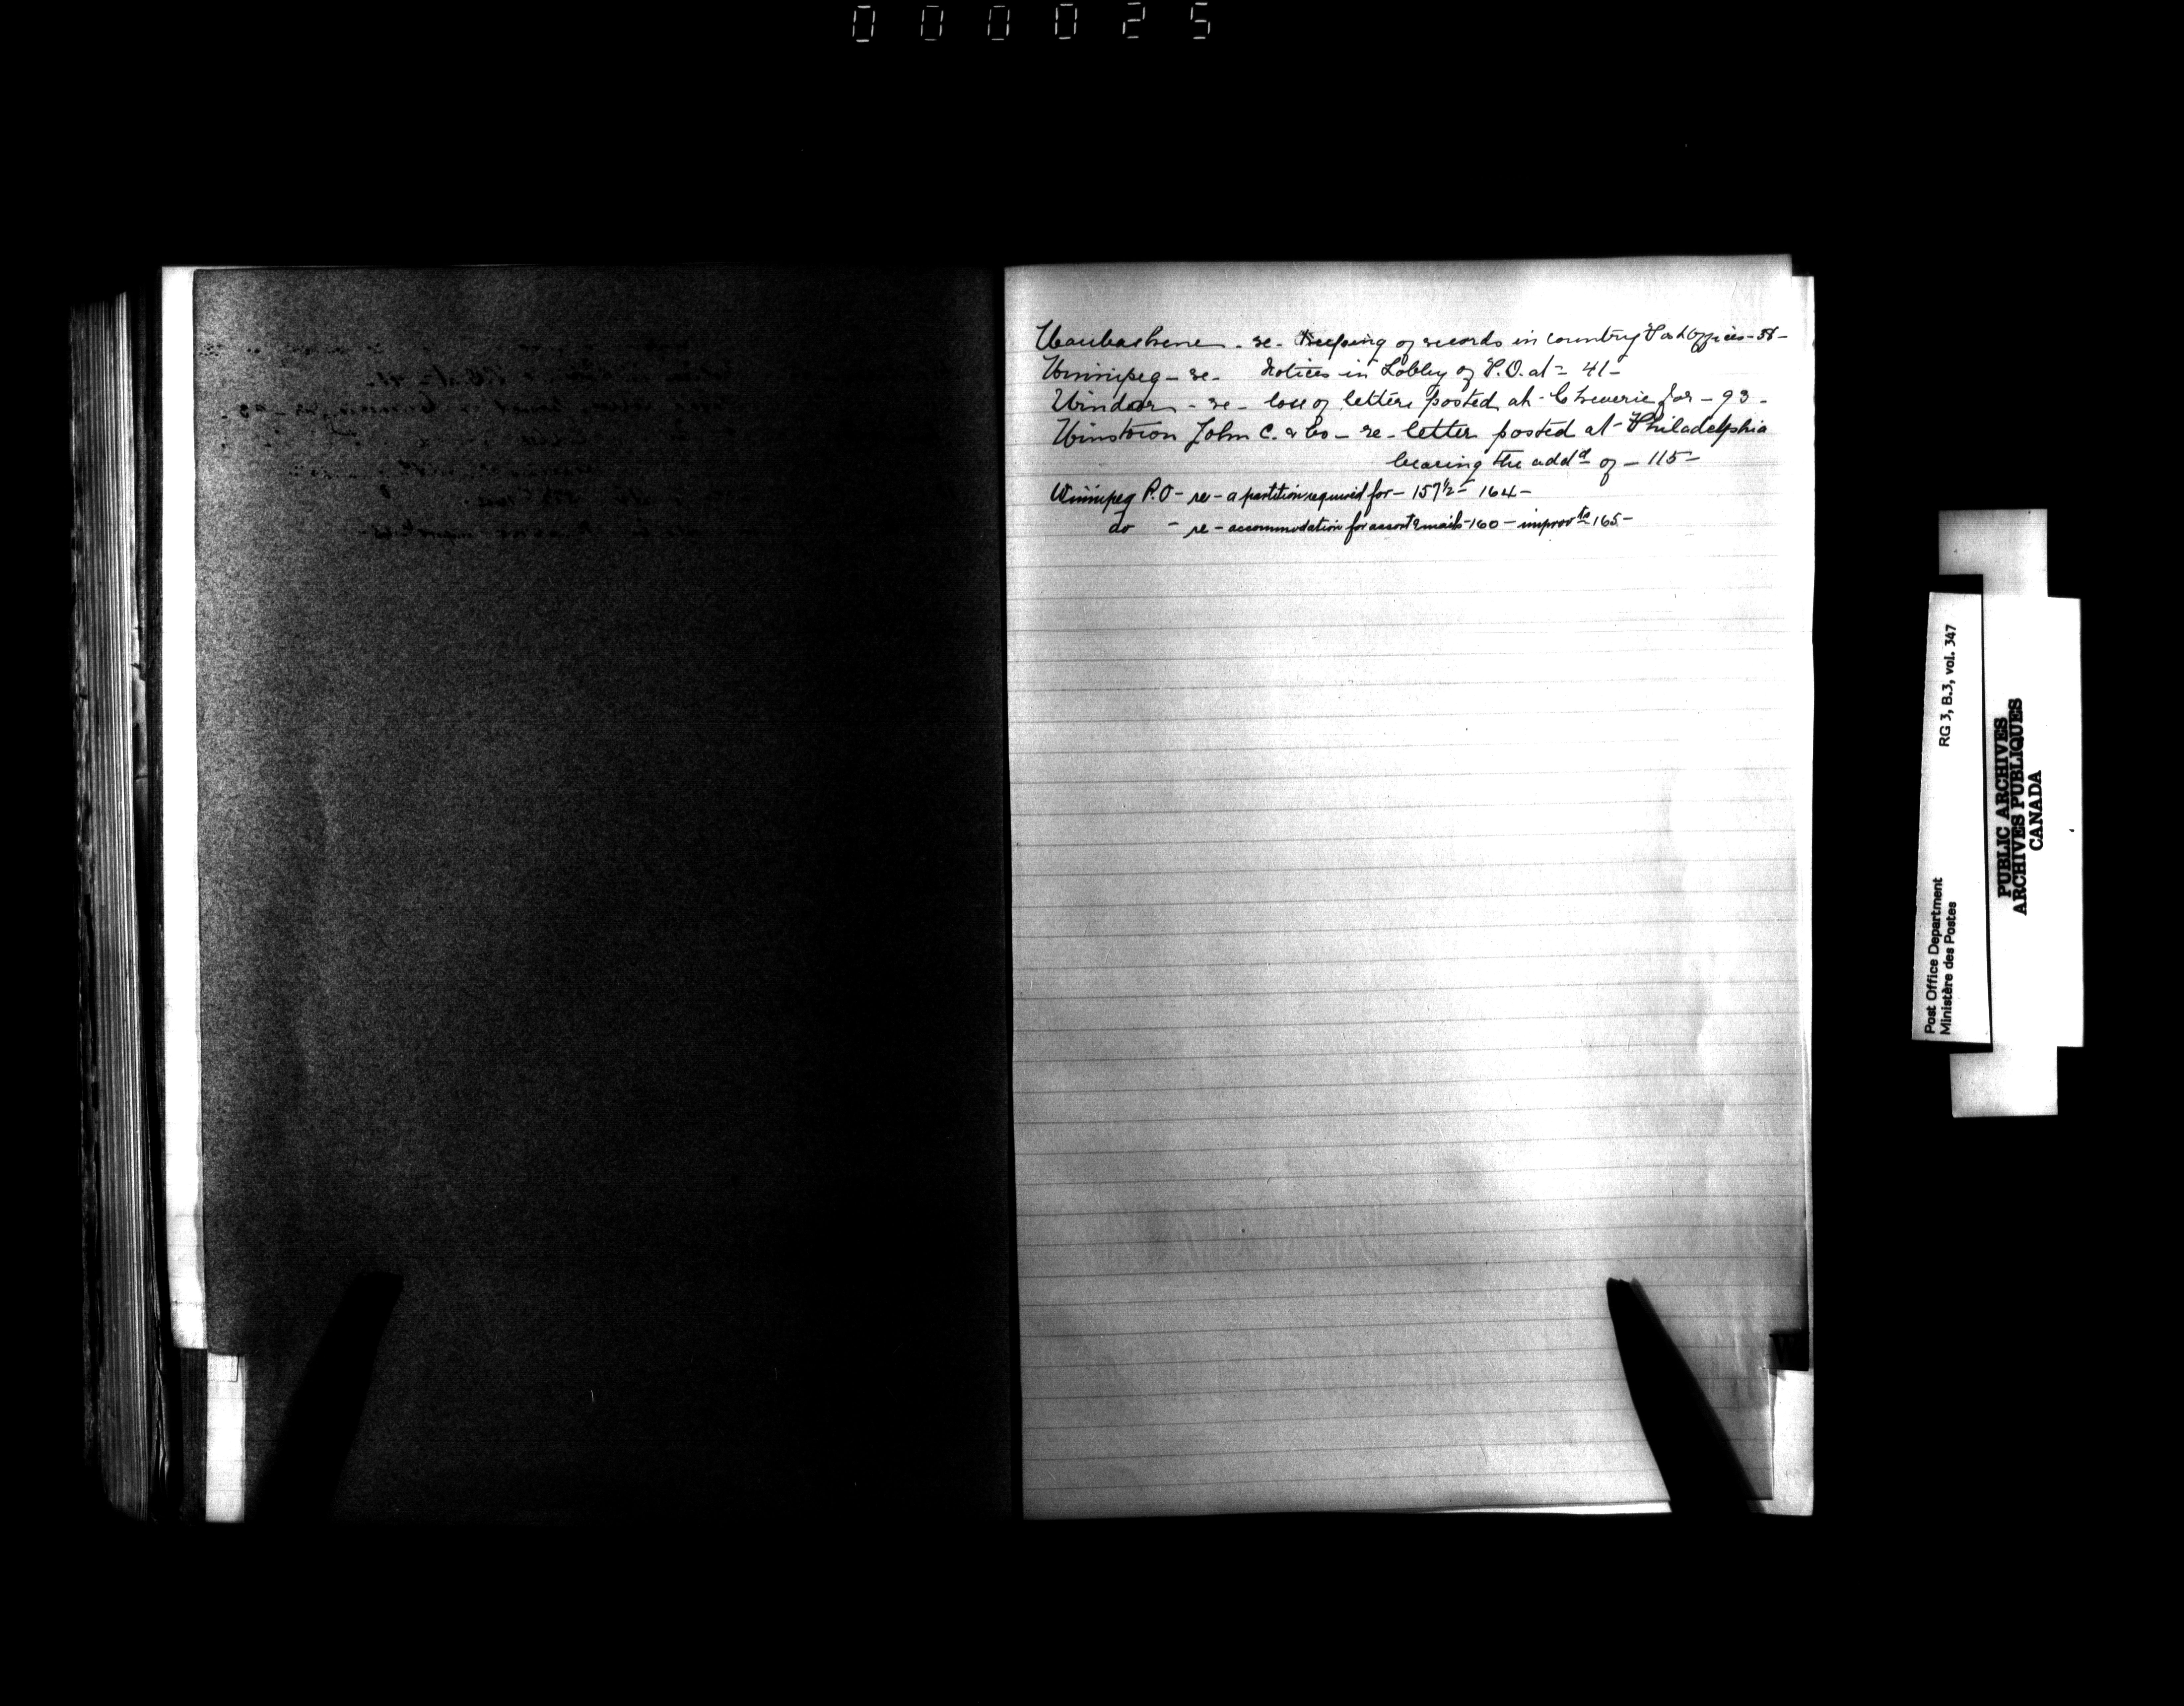 000025
Waubashene - re - Keeping of records in country Post Offices - 38 -
Winnipeg - re - Notices in Lobby of P.O. at - 41 -
Windsor - re - loss of letters posted at - Cheverie for - 93 -
Winston John C. & Co - re - letter posted at - Philadelphia
bearing the addᵈ of - 115 -
Winnipeg P.O - re - a partition required for - 157½ - 164 -
do - re - accommodation for assort'g mails - 160 - improvᵗˢ 165 -
Post Office Department
Ministère des Postes
RG 3, B.3, vol. 347
PUBLIC ARCHIVES
ARCHIVES PUBLIQUES
CANADA